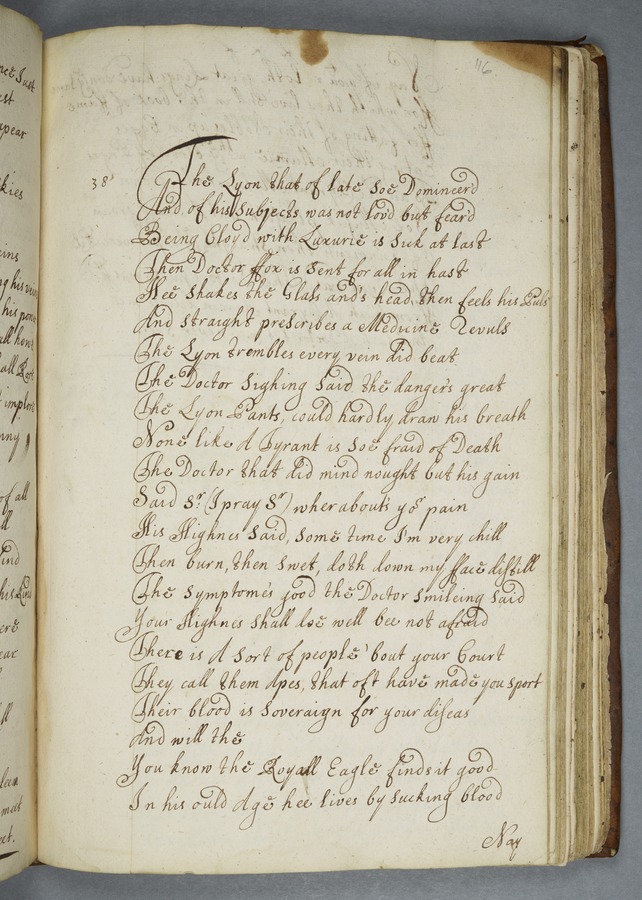 116
38
The Lyon that of late soe Domineerd
And of his Subjects was not lovd but feard
Being Cloyd with Luxurie is Sick at last
Then Doctor ffox is sent for all in hast
Hee shakes the Glass and's head, then feels his Puls
And straight prescribes a Medicine Revuls
The Lyon trembles every vein did beat
The Doctor Sighing Said the dangers great
The Lyon Pants, could hardly draw his breath
None like A Tyrant is soe fraid of Death
The Doctor that did mind nought but his gain
Said Sr. (I pray Sr) wherabouts yor pain
His Highnes Said, some time I'm very chill
Then burn, then swet, doth down my face distill
The Symptomes good the Doctor smileing said
Your Highnes shall doe well bee not afraid
There is A Sort of people 'bout your Court
They call them Apes, that oft have made you sport
Their blood is Soveraign for your diseas
And will the
You know the Royall Eagle finds it good
In his ould Age hee lives by sucking blood
Nay